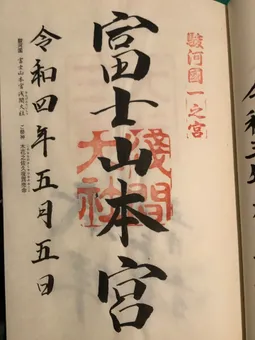 駿河國一之宮
富士山本宮
淺間大社
令和四年五月五日
富士山本宮浅間大社
令和三年